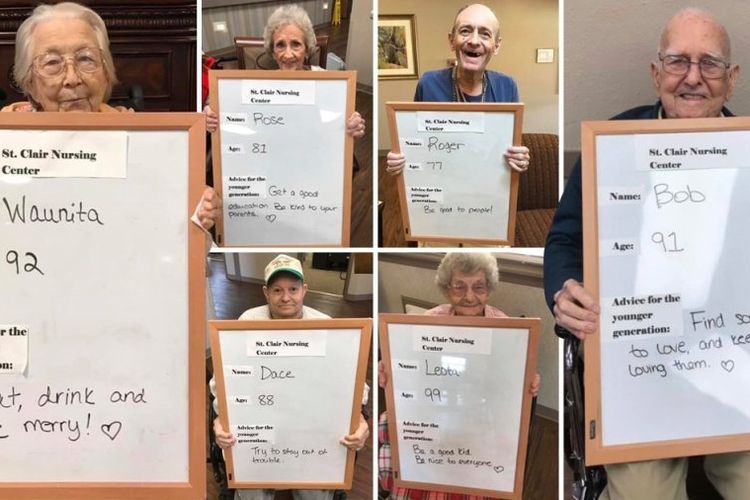 St. Clair Nursing
Center
Waunita
92
r the
on:
t, drink and
merry! ♡
St. Clair Nursing
Center
Name: Rose
Age: 81
Advice for the
younger
generation: Get a good
education. Be kind to your
parents. ♡
St. Clair Nursing
Center
Name: Roger
Age: 77
Advice for the
younger
generation:
Be good to people!
St. Clair Nursing
Center
Name: Dace
Age: 88
Advice for the
younger
generation:
Try to stay out of
trouble.
St. Clair Nursing
Center
Name: Leota
Age: 99
Advice for the
younger
generation:
Be a good kid.
Be nice to everyone ♡
St. Clair Nursing
Center
Name: Bob
Age: 91
Advice for the
younger
generation: Find so
to love, and kee
loving them. ♡